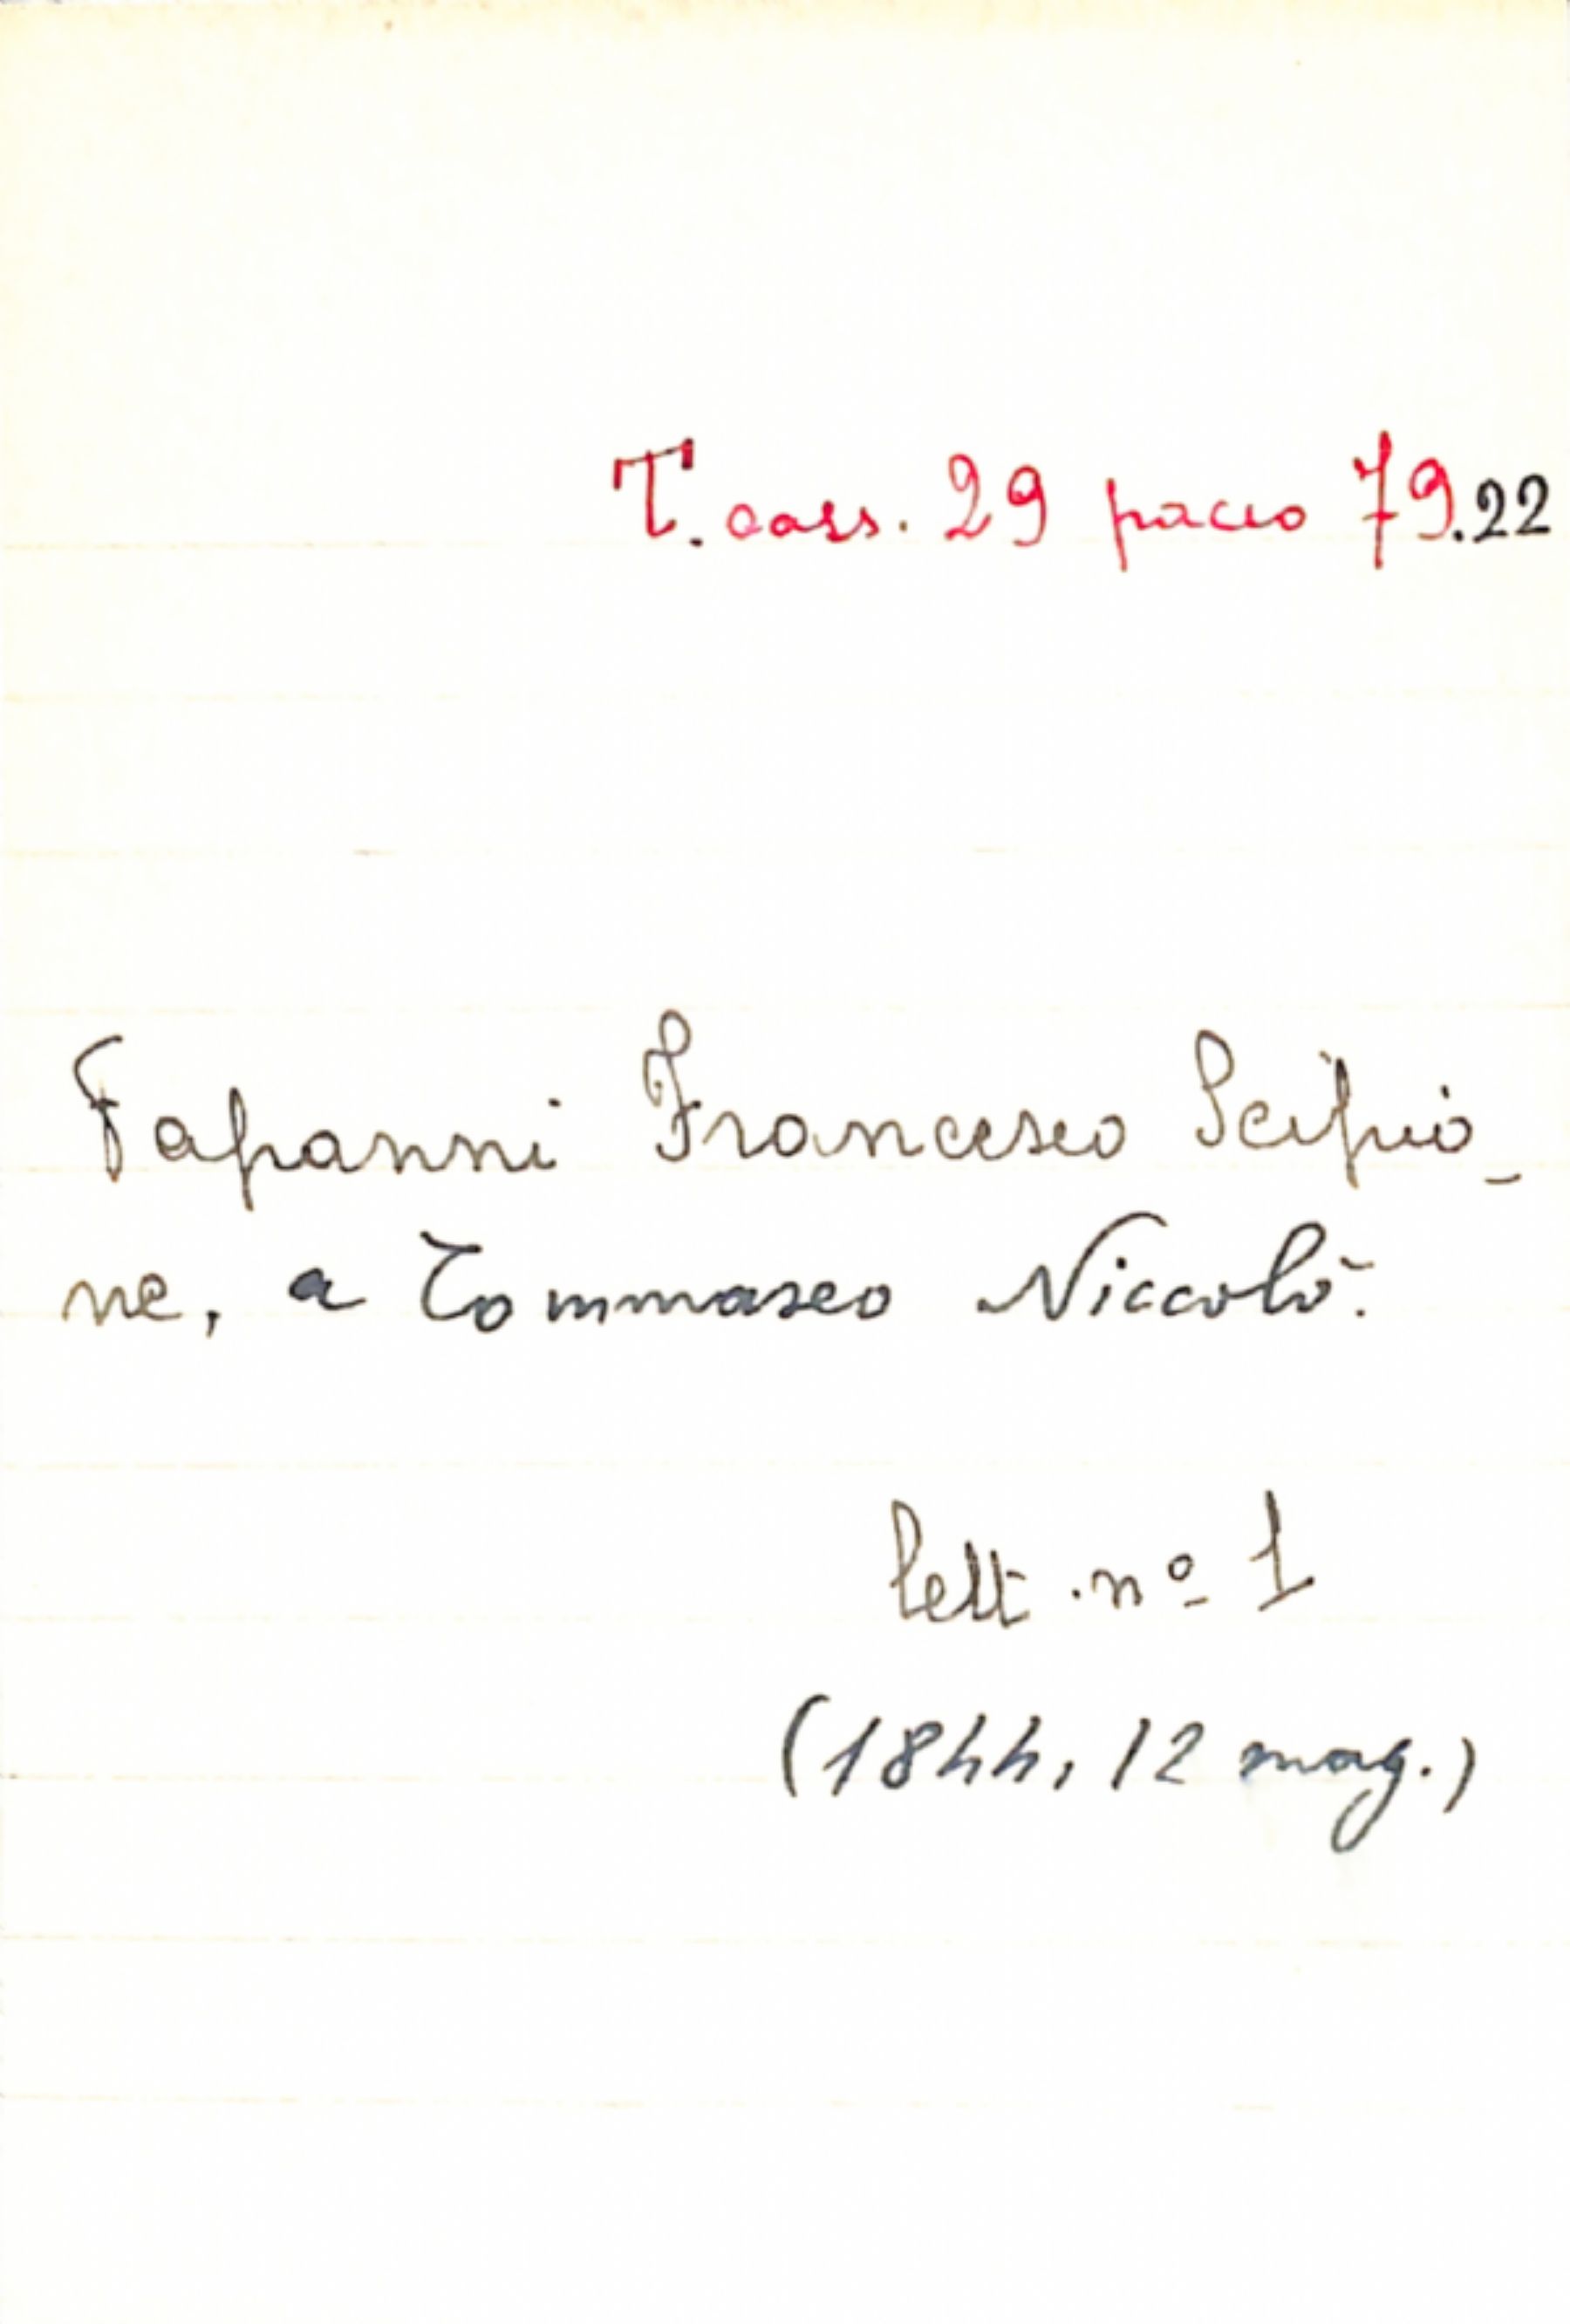 T. cass. 29 pacco 79.22
Fapanni Francesco Scipio-
ne, a Tommaseo Niccolò.
lett. nº 1
(1844, 12 mag.)